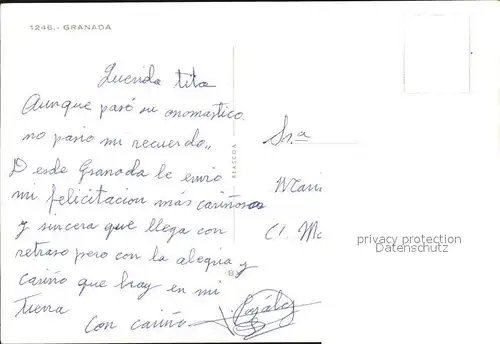 1246.- GRANADA
Querida tita
Aunque pasó su onomastico
no paso mi recuerdo,,
Desde Granada le envio
mi felicitacion más cariñosa
y sincera que llega con
retraso pero con la alegria y
cariño que hay en mi
tierra
Con cariño
Sra
C/.
privacy protection
Datenschutz